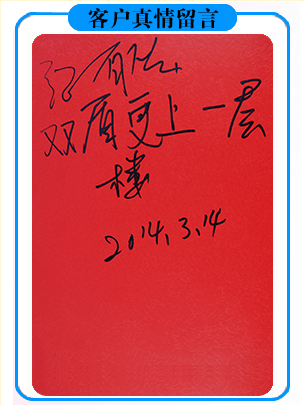 客户真情留言
双盾更上一层
楼
2014.3.14